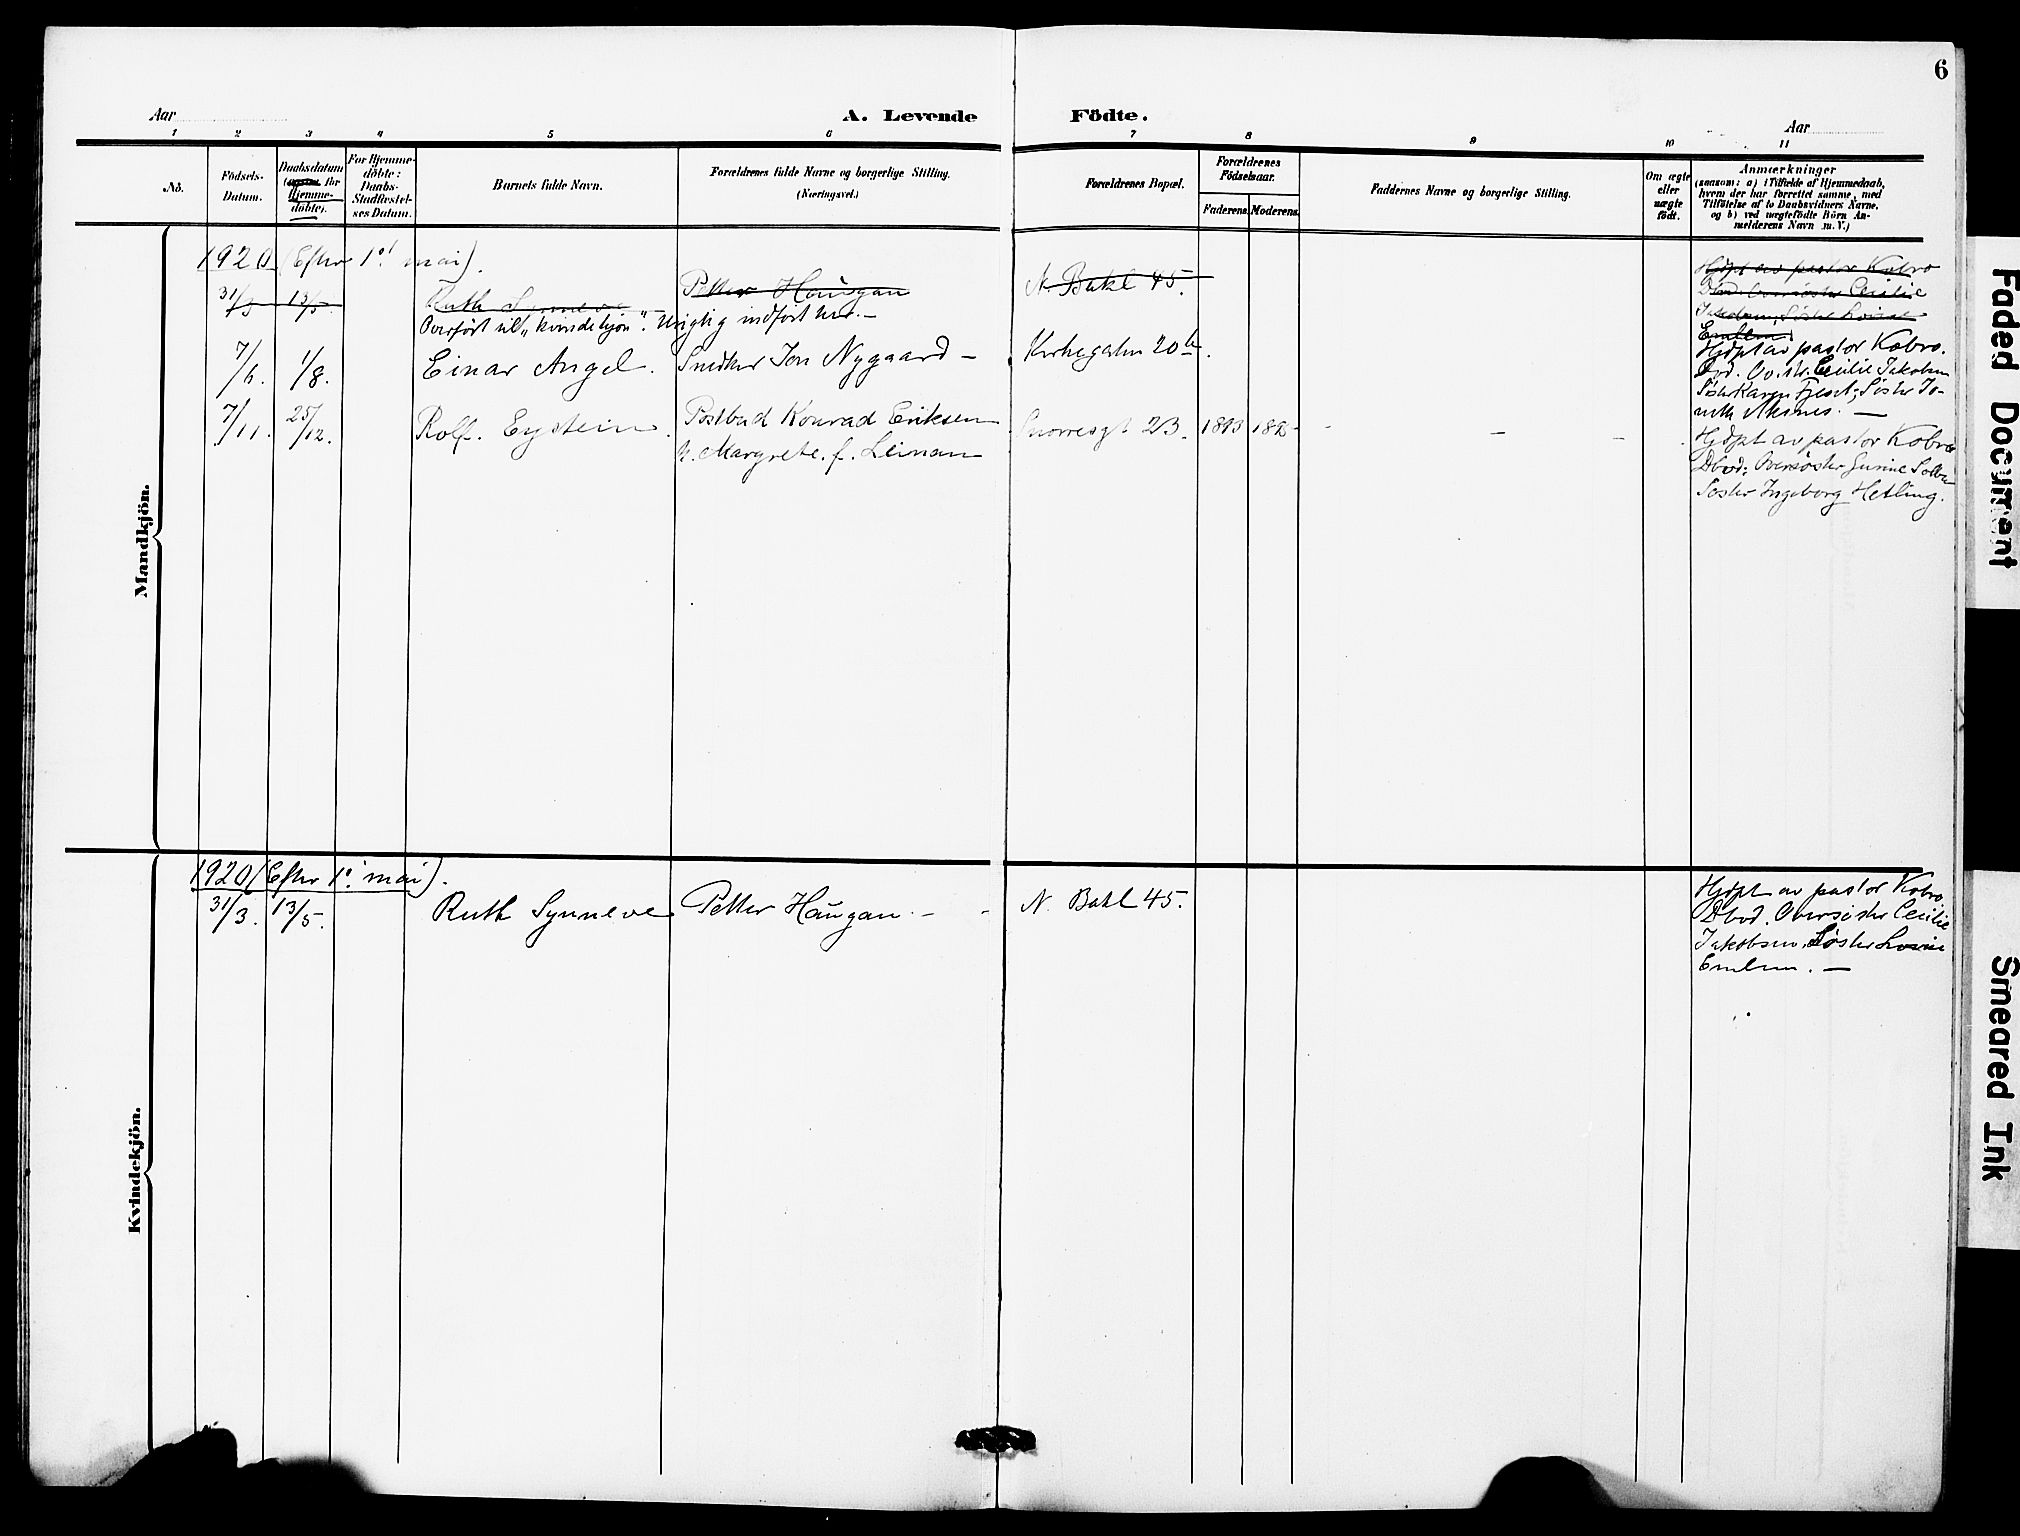 6
Aar A. Levende Födte. Aar
1 2 3 4 5 6 7 8 9 10 11
No.
Födsels-
Datum.
Daabsdatum
for
Hjemme-
döbte).
For Hjemme-
döbte:
Daabs-
Stadfæstel-
ses Datum.
Barnets fulde Navn.
Forældrenes fulde Navne og borgerlige Stilling.
(Næringsvei.)
Forældrenes Bopæl.
Forældrenes
Födselsaar.
Faderens. Moderens.
Faddernes Navne og borgerlige Stilling.
Om ægte
eller
uægte
födt.
Anmærkninger
(saasom: a) i Tilfælde af Hjemmedaab,
hvem der har forrettet samme, med
Tilföielse af to Daabsvidners Navne,
og b) ved uægtefödte Börn An-
melderens Navn m. V.)
Mandkjön.
1920 (Efter 1ˢᵗ mai).
31/3 13/5 Ruth Synneve Petter Haugan N. Bakl 45.
Hjdpt av pastor Kobro
Dbvd. Oversøster Cecilie
Jakobsen, Søster Lovise
Emlem
Overført til „kvindekjøn". Urigtig indført her. –
7/6. 1/8. Einar Angel. Snedker Jon Nygaard – Kirkegaten 20b.
Hjdpt av pastor Kobro.
Dvd. Ov.str. Cecilie Jakobsen
Søster Karen
7/11. 25/12. Rolf. Eystein. Postbud Konrad Eriksen Snorresgt 23. 1893
h. Margrete. f. Leinan
Hjdpt av pastor Kobro
Dbvd: Oversøster Gurine
Søster Ingeborg Hetling.
Kvindekjön.
1920 (Efter 1. mai).
31/3. 13/5. Ruth Synneve Petter Haugan. – N. Bakl 45.
Hjdpt av pastor Kobro
Dbvd. Oversøster Cecilie
Jakobsen, Søster Lovise
Emlem. –
Faded Document
Smeared Ink